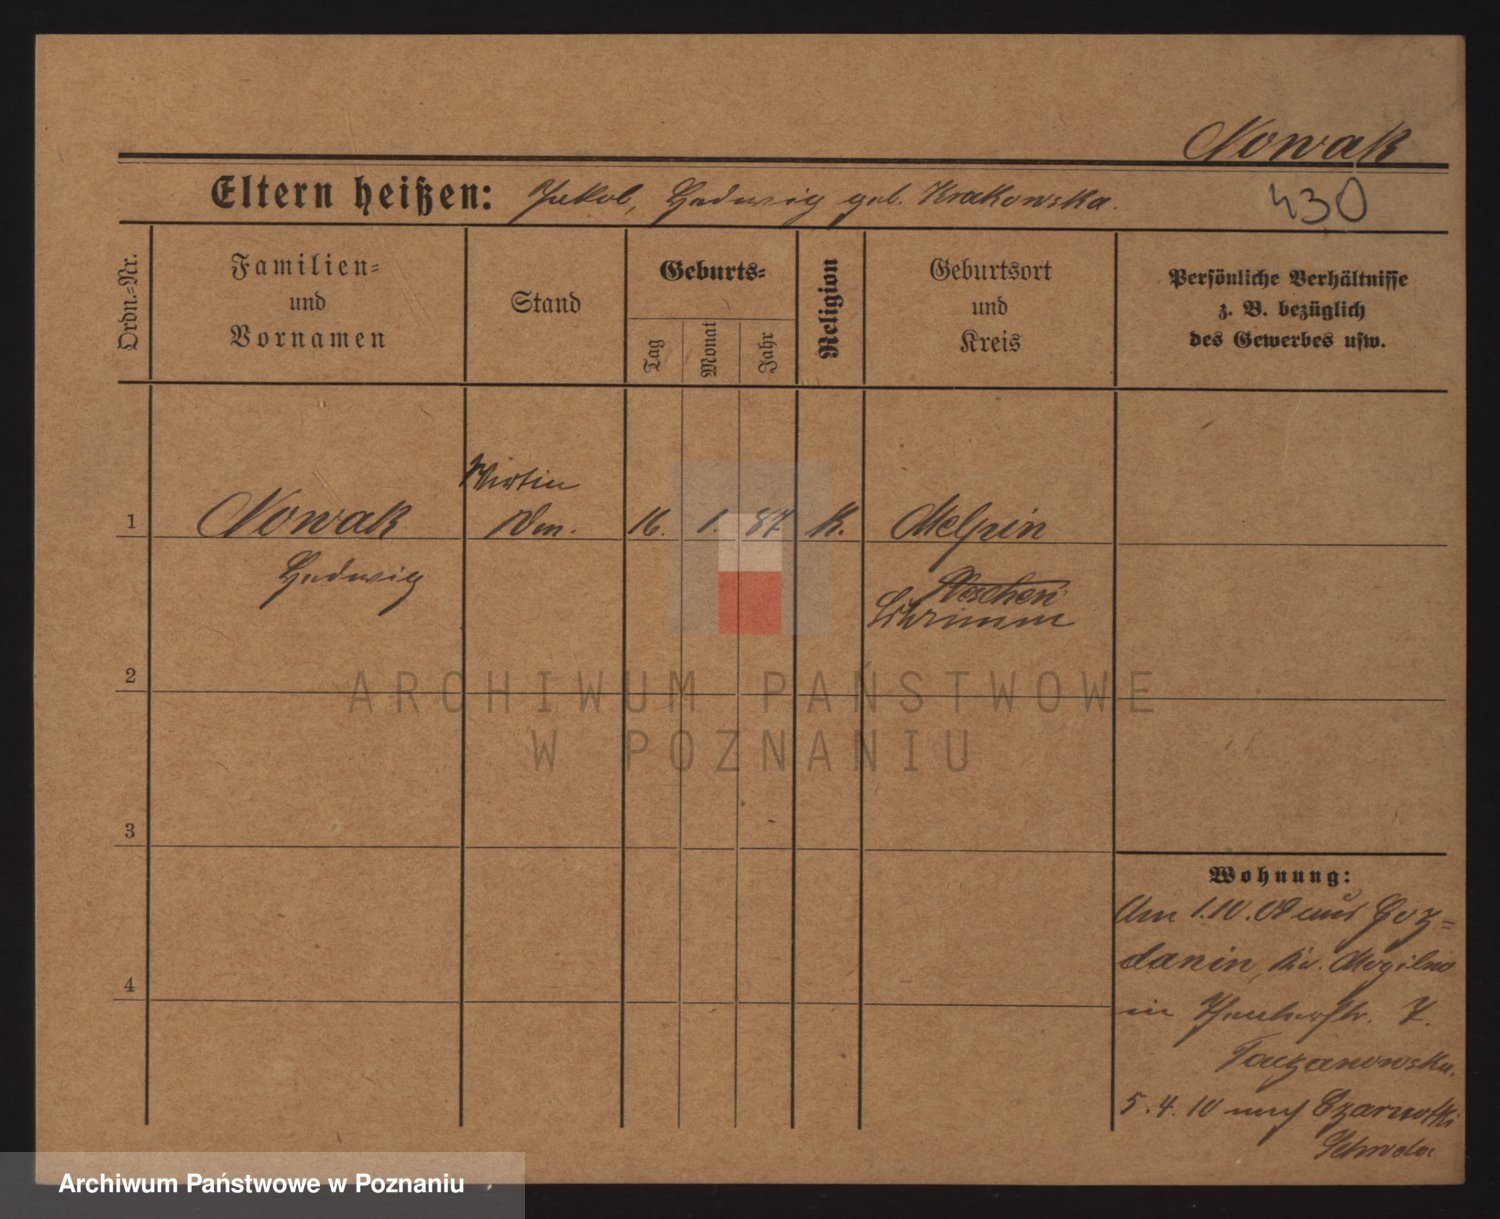 Nowak
Eltern heißen: Jakob, Hedwig geb. Krakowska.
430
Ordn.-Nr.
Familien-
und
Vornamen
Stand
Geburts-
Tag
Monat
Jahr
Religion
Geburtsort
und
Kreis
Persönliche Verhältnisse
z. B. bezüglich
des Gewerbes usw.
Wirtin
1 Nowak 16. 1. 87 K. Melpin
Hedwig
Pleschen
Schrimm
2
ARCHIWUM PAŃSTWOWE
W POZNANIU
3
Wohnung:
Am 1.10.09 aus Goz=
danin, Kr. Mogilno
in
Taczanowska.
4
5.4.10 nach Czarnotki
Schroda
Archiwum Państwowe w Poznaniu